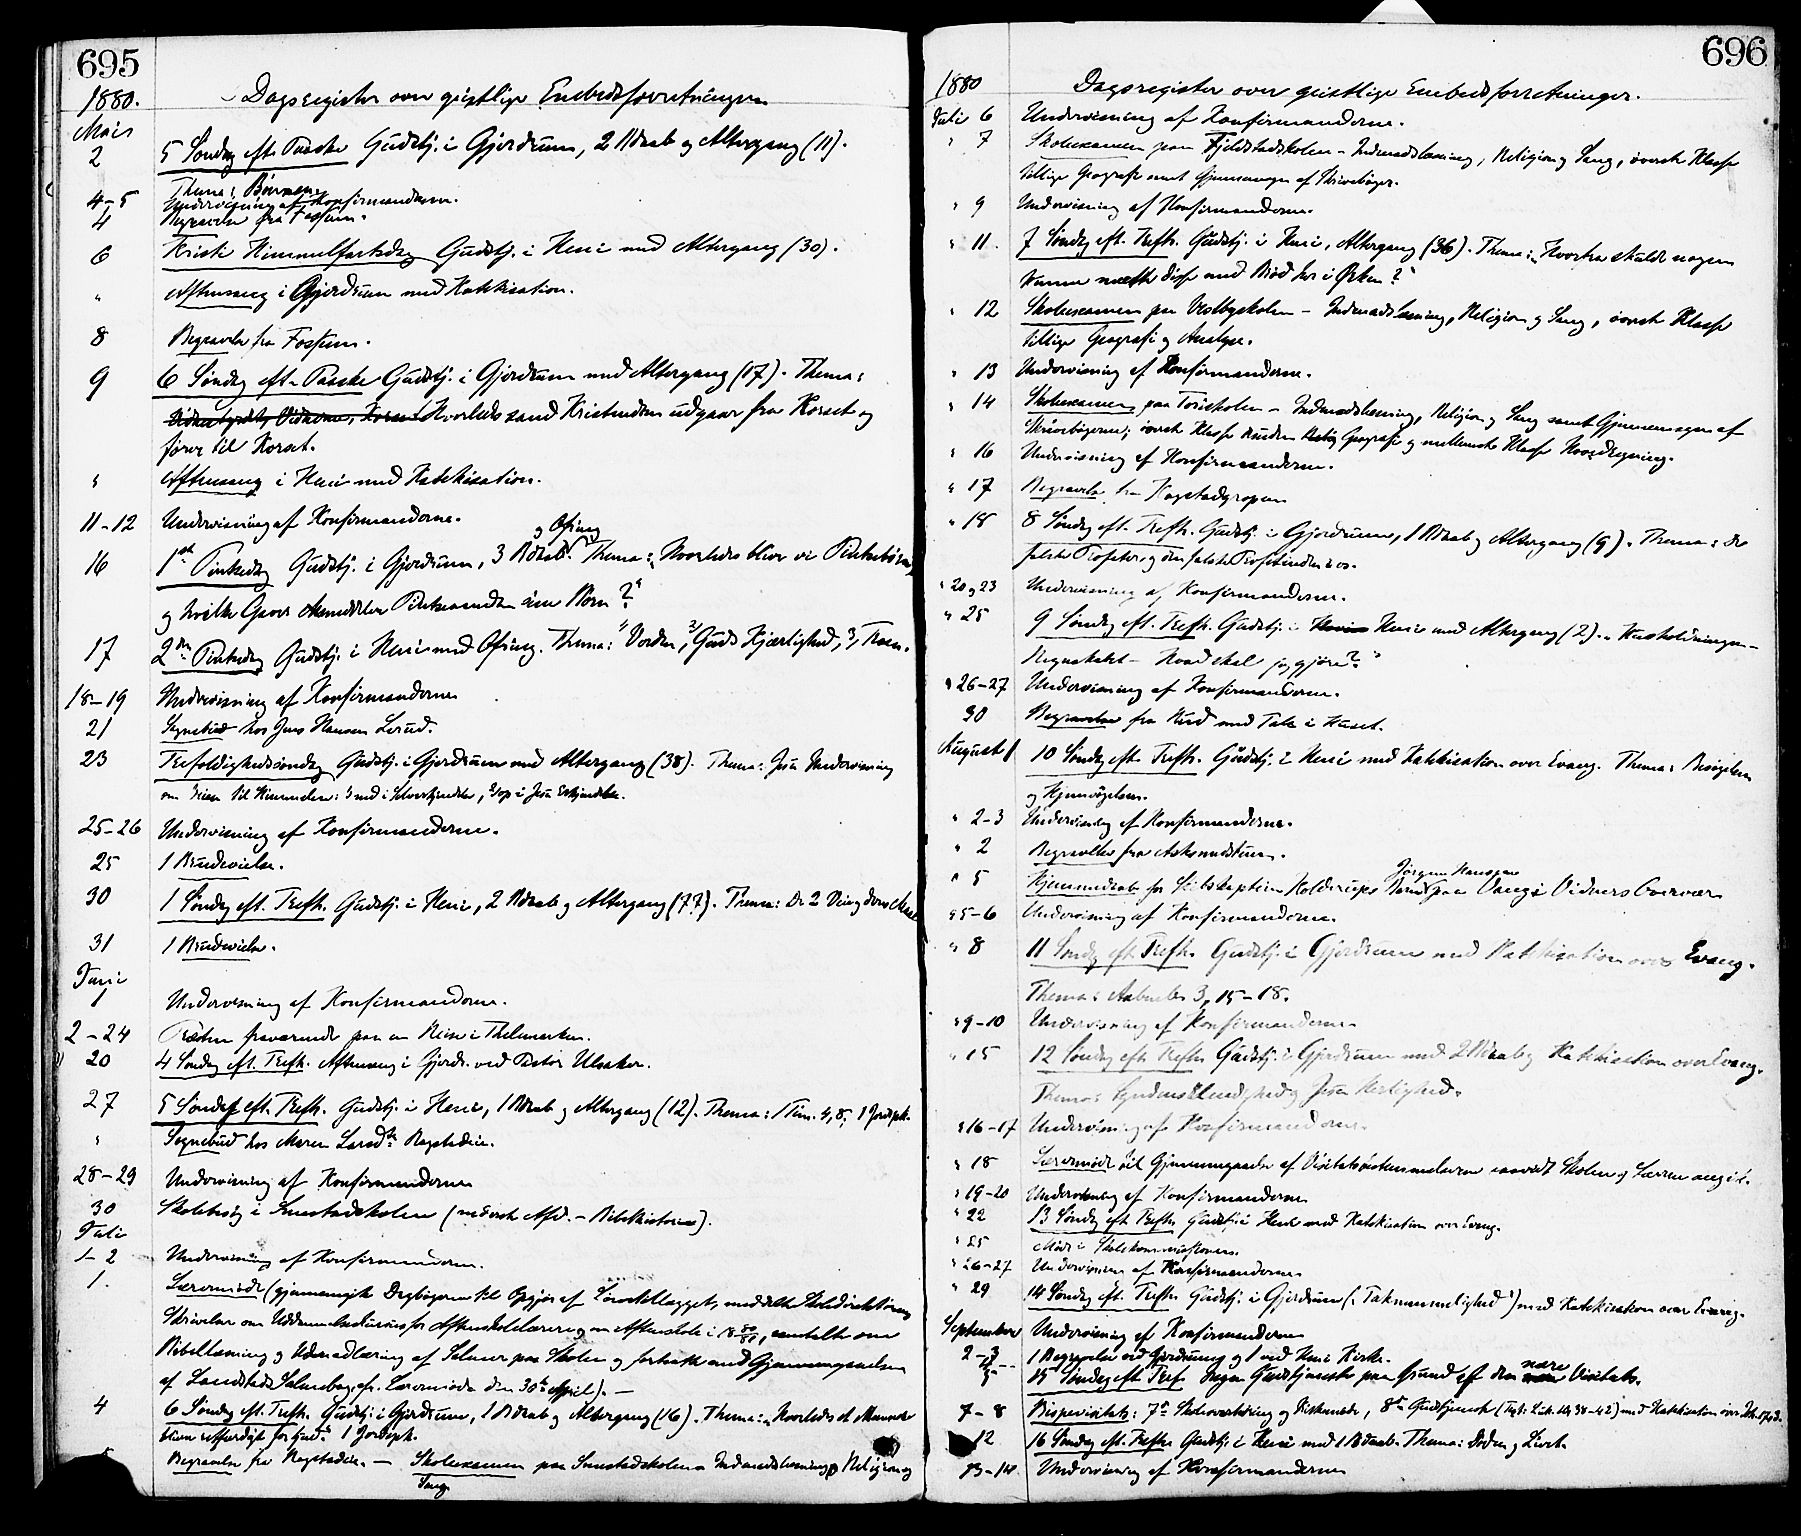 695
1880. Dagsregister over geistlige Embedsforretninger
Mai
2 5 Søndag eft. Paaske Gudstj. i Gjerdrum, 2 Bdaab og Altergang (11).
Thema: Børnene
4-5 Undervisning af Konfirmanderne.
4 Begravelse fra Fossum.
6 Kristi Himmelfartsdag Gudstj. i Heni med Altergang (30).
" Aftensang i Gjerdrum med Katekisation.
8 Begravelse fra Fossum.
9 6 Søndag eft. Paaske Gudstj. i Gjerdrum med Altergang (17). Thema:
Hvorledes sand Kristendom udgaar fra Korset og
fører til Korset.
" Aftensang i Heni med Katekisation.
11-12 Undervisning af Konfirmanderne.
og Ofring
16 1ste Pintsedag Gudstj. i Gjerdrum, 3 Bdaab. Thema: "Hvorledes blive vi Pintsebørn,
og hvilke Gaver meddeler Pintseaanden sine Børn?"
17 2den Pintsedag Gudstj. i Heni med Ofring. Thema: 1, Verden, 2, Guds Kjærlighed, 3, Troen.
18-19 Undervisning af Konfirmanderne
21 Sognebud hos Jens Hansen Lerud.
23 Trefoldighedssøndag Gudstj. i Gjerdrum med Altergang (38). Thema: Jesu Undervisning
om Veien til Himmelen: 1, ned i Selverkjendelse, 2, op i Jesu Erkjendelse.
25-26 Undervisning af Konfirmanderne.
25 1 Brudevielse.
30 1 Søndag eft. Trefh. Gudstj. i Heni, 2 Bdaab og Altergang (77). Thema: De 2 Veie og deres Maal
31 1 Brudevielse.
Juni
1 Undervisning af Konfirmanderne.
2-24 Præsten fraværende paa en Reise i Thelemarken.
20 4 Søndag eft. Trefh. Aftensang i Gjerdr. ved Pastor Ulsaker.
27 5 Søndag eft. Trefh. Gudstj. i Heni, 1 Bdaab og Altergang (12). Thema: 1 Tim. 4,8; 1 Jordpk.
" Sognebud hos Maren Larsdtr Ragstadeie.
28-29 Undervisning af Konfirmanderne
30 Skolebesøg i Smestadskolen (nederste Afd. - Bibelhistorie).
Juli
1-2 Undervisning af Konfirmanderne.
1. Læremøde (gjennemgik Dagbøgerne til Opgjør af Lønstillægget, meddelte Skoledirektørens
Skrivelse om Uddannelseskursus for Aftenskolelærere og om Aftenskole i 1880/81, samtalte om
Bibellæsning og Udenadlæring af Salmer paa Skolen og fortsatte med Gjennemgaaelsen
af Landstads Salmebog cfr. Læremøde den 30te April). -
4 6 Søndag eft. Trefh. Gudstj. i Gjerdrum, 1 Bdaab og Altergang (16). Thema: "Hvorledes et Menneske
bliver retfærdigt for Gud." 1 Jordpk.
Begravelse fra Ragstadeie. - Skoleexamen paa Smestadskolen Indenadslæsning, Religion og
Sang
696
1880 Dagsregister over geistlige Embedsforretninger.
Juli 6 Undervisning af Konfirmanderne.
" 7 Skoleexamen paa Fjeldstadskolen - Indenadslæsning, Religion og Sang, øverste Klasse
tillige Geografi samt Gjennemsyn af Skrivebøger.
" 9 Undervisning af Konfirmanderne.
" 11. 7 Søndag eft. Trefh. Gudstj. i Heni, Altergang (36). Thema: "Hvorfra skulde nogen
kunne mætte disse med Brød her i Ørken?"
" 12 Skoleexamen paa Vestbyskolen - Indenadslæsning, Religion og Sang, øverste Klasse
tillige Geografi og Analyse.
" 13 Undervisning af Konfirmanderne.
" 14 Skoleexamen paa Foriskolen - Indenadslæsning, Religion og Sang samt Gjennemsyn af
Skrivebøgerne; øverste Klasse desuden Geografi og mellemste Klasse Hovedregning.
" 16 Undervisning af Konfirmanderne.
" 17 Begravelse fra Kogstadgropen
" 18 8 Søndag eft. Trefh. Gudstj. i Gjerdrum, 1 Bdaab og Altergang (9). Thema: De
falske Profeter og den falske Profetinde i os.
" 20 og 23 Undervisning af Konfirmanderne.
" 25 9 Søndag eft. Trefh. Gudstj. i Heni med Altergang (2). "Husholdningen -
Regnskabet - Hvad skal jeg gjøre?"
" 26-27 Undervisning af Konfirmanderne.
30 Begravelse fra Rud med Tale i Huset.
August 1 10 Søndag eft. Trefh. Gudstj. i Heni med Katekisation over Evang. Thema: Besøgelsen
og Hjemsøgelsen.
" 2-3 Undervisning af Konfirmanderne.
" 2 Begravelse fra Askmudstuen.
Jørgen Hansson
" 5 Hjemmedaab for Skibskaptein Holdrups Barn paa Vang i Vidners Overvær
" 5-6 Undervisning af Konfirmanderne.
" 8 11 Søndag eft. Trefh. Gudstj. i Gjerdrum med Katekisation over Evang.
Thema: Aabenb. 3, 15-18.
" 9-10 Undervisning af Konfirmanderne
" 15 12 Søndag eft. Trefh. Gudstj. i Gjerdrum med 2 Bdaab og Katekisation over Evang.
Thema: Syndens Elendighed og Jesu Herlighed.
" 16-17 Undervisning af Konfirmanderne.
" 18 Læremøde til Gjennemgaaelse af Visitatsbestemmelserne saavidt Skolen og Læreren angik.
" 19-20 Undervisning af Konfirmanderne
" 22 13 Søndag eft. Trefh. Gudstj. i Heni med Katekisation over Evang.
" 25 Møde i Skolekommissionen.
" 26-27 Undervisning af Konfirmanderne
" 29 14 Søndag eft. Trefh. Gudstj. i Gjerdrum ("Taknemmelighed") med Katekisation over Evang.
September Undervisning af Konfirmanderne
2-3 1 Begravelse ved Gjerdrum og 1 ved Heni Kirke.
nære
5 15 Søndag eft. Tref. Ingen Gudstjeneste paa Grund af den Visitats.
7-8 Bispevisitats: 7de Skoleoverhøring og Piskemøde, 8de Gudstjeneste (Txt: Luk. 10,38-42) med Katekisation over
12 16 Søndag eft. Trefh. Gudstj. i Heni med 1 Bdaab. Thema: Døden og Livet.
13-14 Undervisning af Konfirmanderne